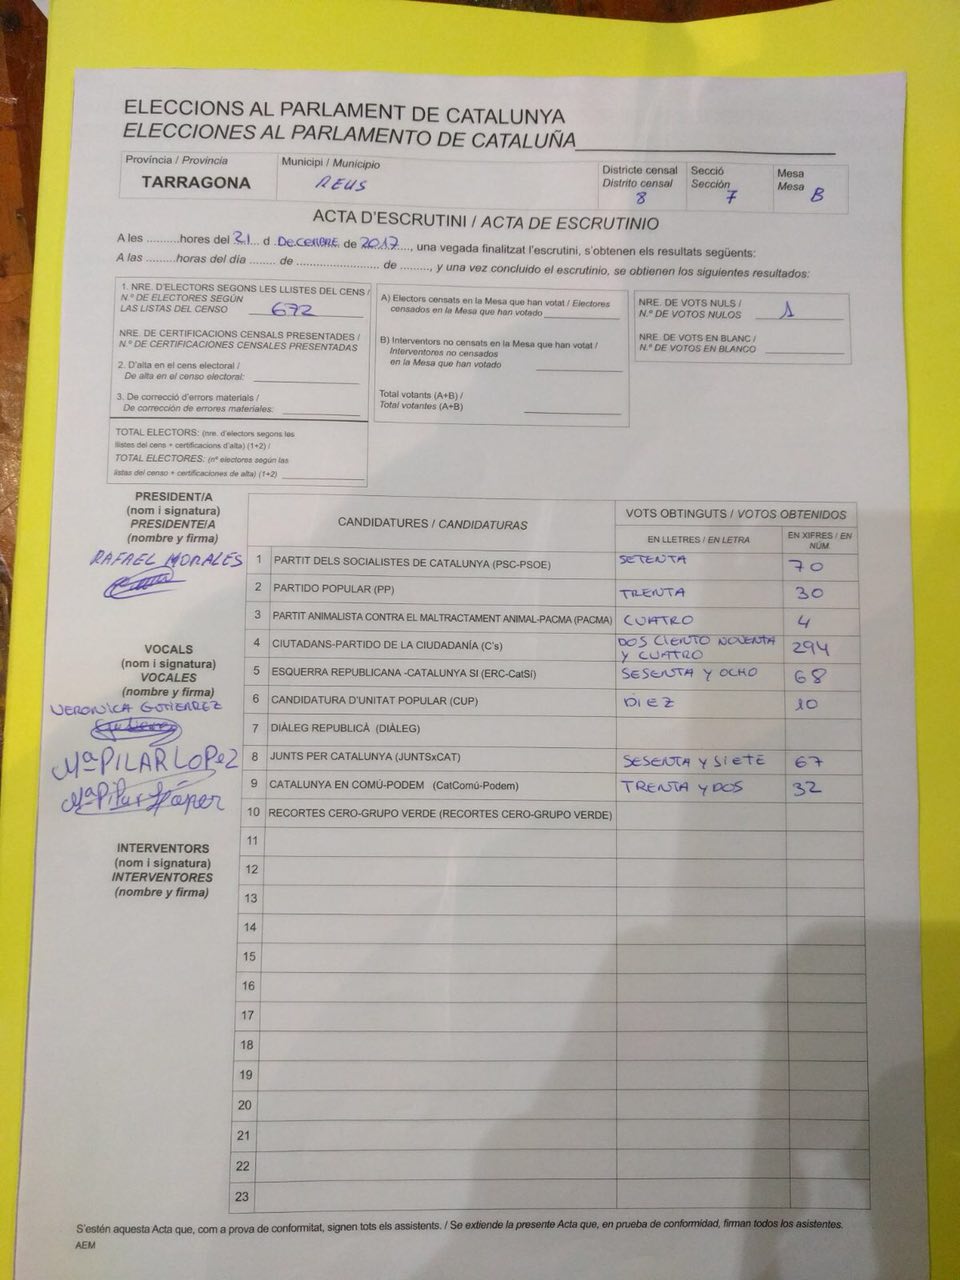 ELECCIONS AL PARLAMENT DE CATALUNYA
ELECCIONES AL PARLAMENTO DE CATALUÑA
Província / Provincia
TARRAGONA
Municipi / Municipio
REUS
Districte censal
Distrito censal
8
Secció
Sección
7
Mesa
Mesa B
ACTA D'ESCRUTINI / ACTA DE ESCRUTINIO
A les ..........hores del 21 d DECEMBRE de 2017, una vegada finalitzat l'escrutini, s'obtenen els resultats següents:
A las .........horas del día ........ de ......................... de ........., y una vez concluido el escrutinio, se obtienen los siguientes resultados:
1. NRE. D'ELECTORS SEGONS LES LLISTES DEL CENS /
N.º DE ELECTORES SEGÚN
LAS LISTAS DEL CENSO 672
NRE. DE CERTIFICACIONS CENSALS PRESENTADES /
N.º DE CERTIFICACIONES CENSALES PRESENTADAS
2. D'alta en el cens electoral /
De alta en el censo electoral:
3. De correcció d'errors materials /
De corrección de errores materiales:
TOTAL ELECTORS: (nre. d'electors segons les
llistes del cens + certificacions d'alta) (1+2) /
TOTAL ELECTORES: (nº electores según las
listas del censo + certificaciones de alta) (1+2)
A) Electors censats en la Mesa que han votat / Electores
censados en la Mesa que han votado
B) Interventors no censats en la Mesa que han votat /
Interventores no censados
en la Mesa que han votado
Total votants (A+B) /
Total votantes (A+B)
NRE. DE VOTS NULS /
N.º DE VOTOS NULOS 1
NRE. DE VOTS EN BLANC /
N.º DE VOTOS EN BLANCO
PRESIDENT/A
(nom i signatura)
PRESIDENTE/A
(nombre y firma)
RAFAEL MORALES
VOCALS
(nom i signatura)
VOCALES
(nombre y firma)
VERONICA GUTIERREZ
Gutierrez
Mª PILAR LOPEZ
Mª Pilar López
INTERVENTORS
(nom i signatura)
INTERVENTORES
(nombre y firma)
CANDIDATURES / CANDIDATURAS
VOTS OBTINGUTS / VOTOS OBTENIDOS
EN LLETRES / EN LETRA
EN XIFRES / EN
NÚM
1 PARTIT DELS SOCIALISTES DE CATALUNYA (PSC-PSOE) SETENTA 70
2 PARTIDO POPULAR (PP) TRENTA 30
3 PARTIT ANIMALISTA CONTRA EL MALTRACTAMENT ANIMAL-PACMA (PACMA) CUATRO 4
4 CIUTADANS-PARTIDO DE LA CIUDADANÍA (C's) DOS CIENTO NOVENTA
Y CUATRO 294
5 ESQUERRA REPUBLICANA -CATALUNYA SI (ERC-CatSí) SESENTA Y OCHO 68
6 CANDIDATURA D'UNITAT POPULAR (CUP) DIEZ 10
7 DIÀLEG REPUBLICÀ (DIÀLEG)
8 JUNTS PER CATALUNYA (JUNTSxCAT) SESENTA Y SIETE 67
9 CATALUNYA EN COMÚ-PODEM (CatComú-Podem) TRENTA Y DOS 32
10 RECORTES CERO-GRUPO VERDE (RECORTES CERO-GRUPO VERDE)
11
12
13
14
15
16
17
18
19
20
21
22
23
S'estén aquesta Acta que, com a prova de conformitat, signen tots els assistents. / Se extiende la presente Acta que, en prueba de conformidad, firman todos los asistentes.
AEM